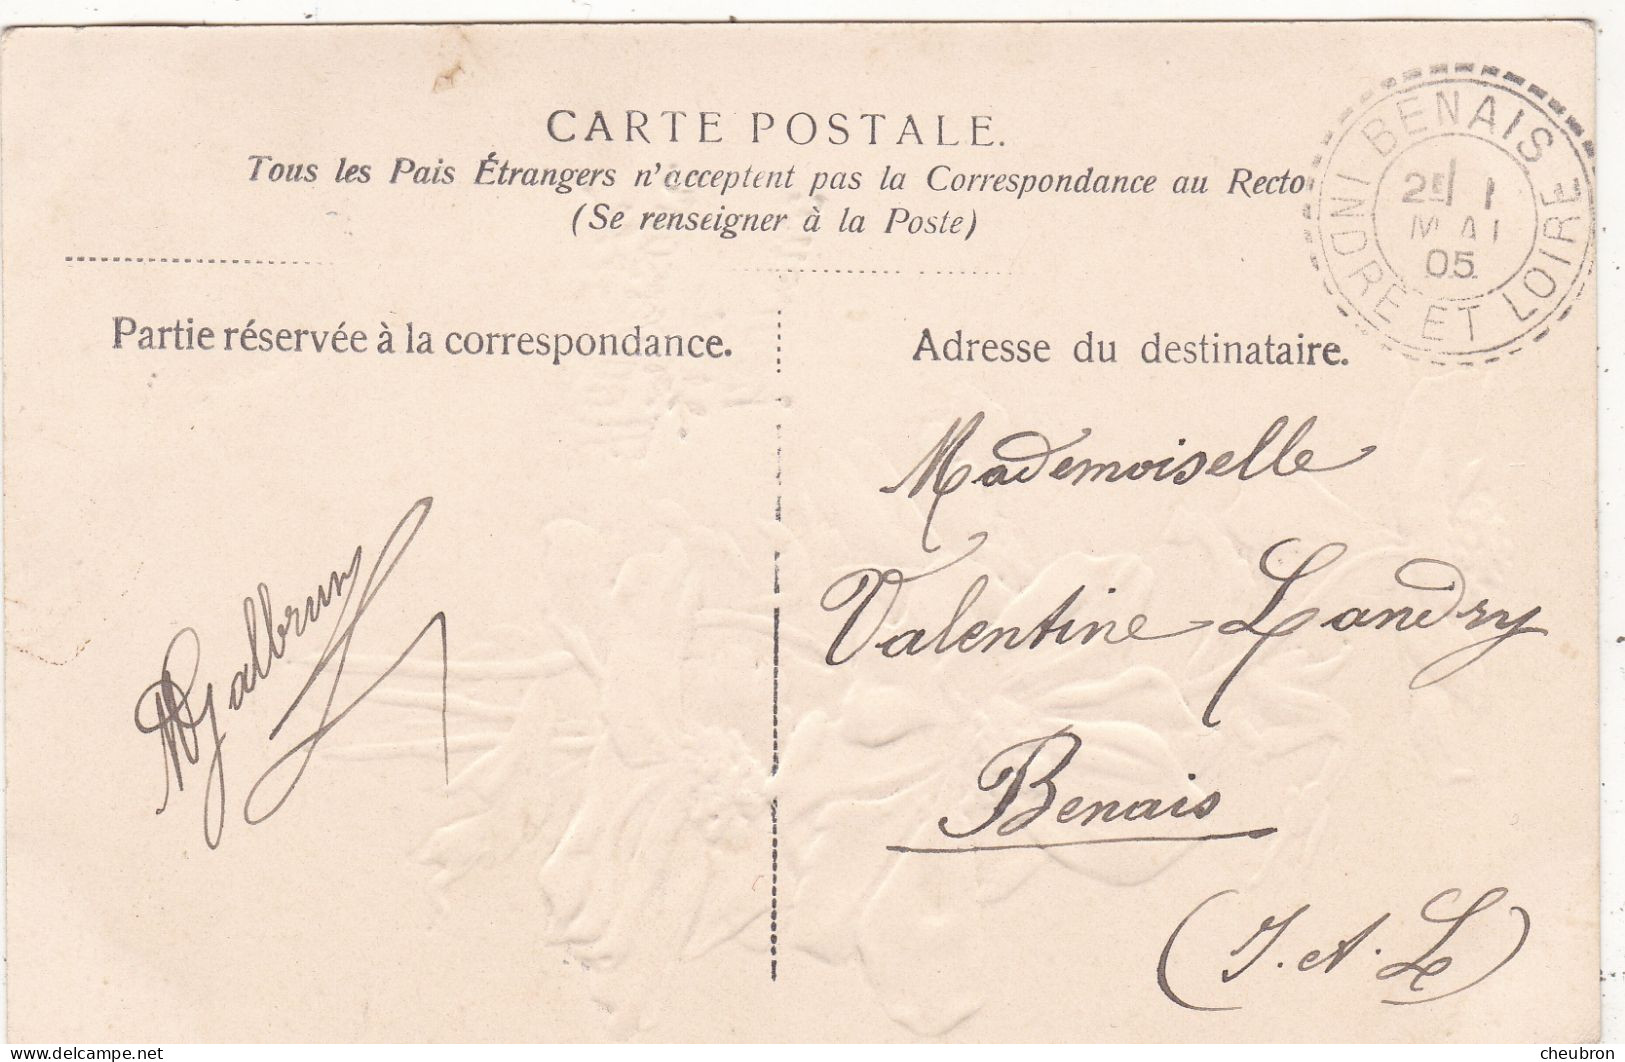 CARTE POSTALE.
Tous les Pais Étrangers n'acceptent pas la Correspondance au Recto
(Se renseigner à la Poste)
BENAIS
2E 1
MAI
05
INDRE ET LOIRE
Partie réservée à la correspondance.
Adresse du destinataire.
Mademoiselle
Valentine Landry
Benais
(I. et. L)
MGalbrun
delcampe.net
cheubron